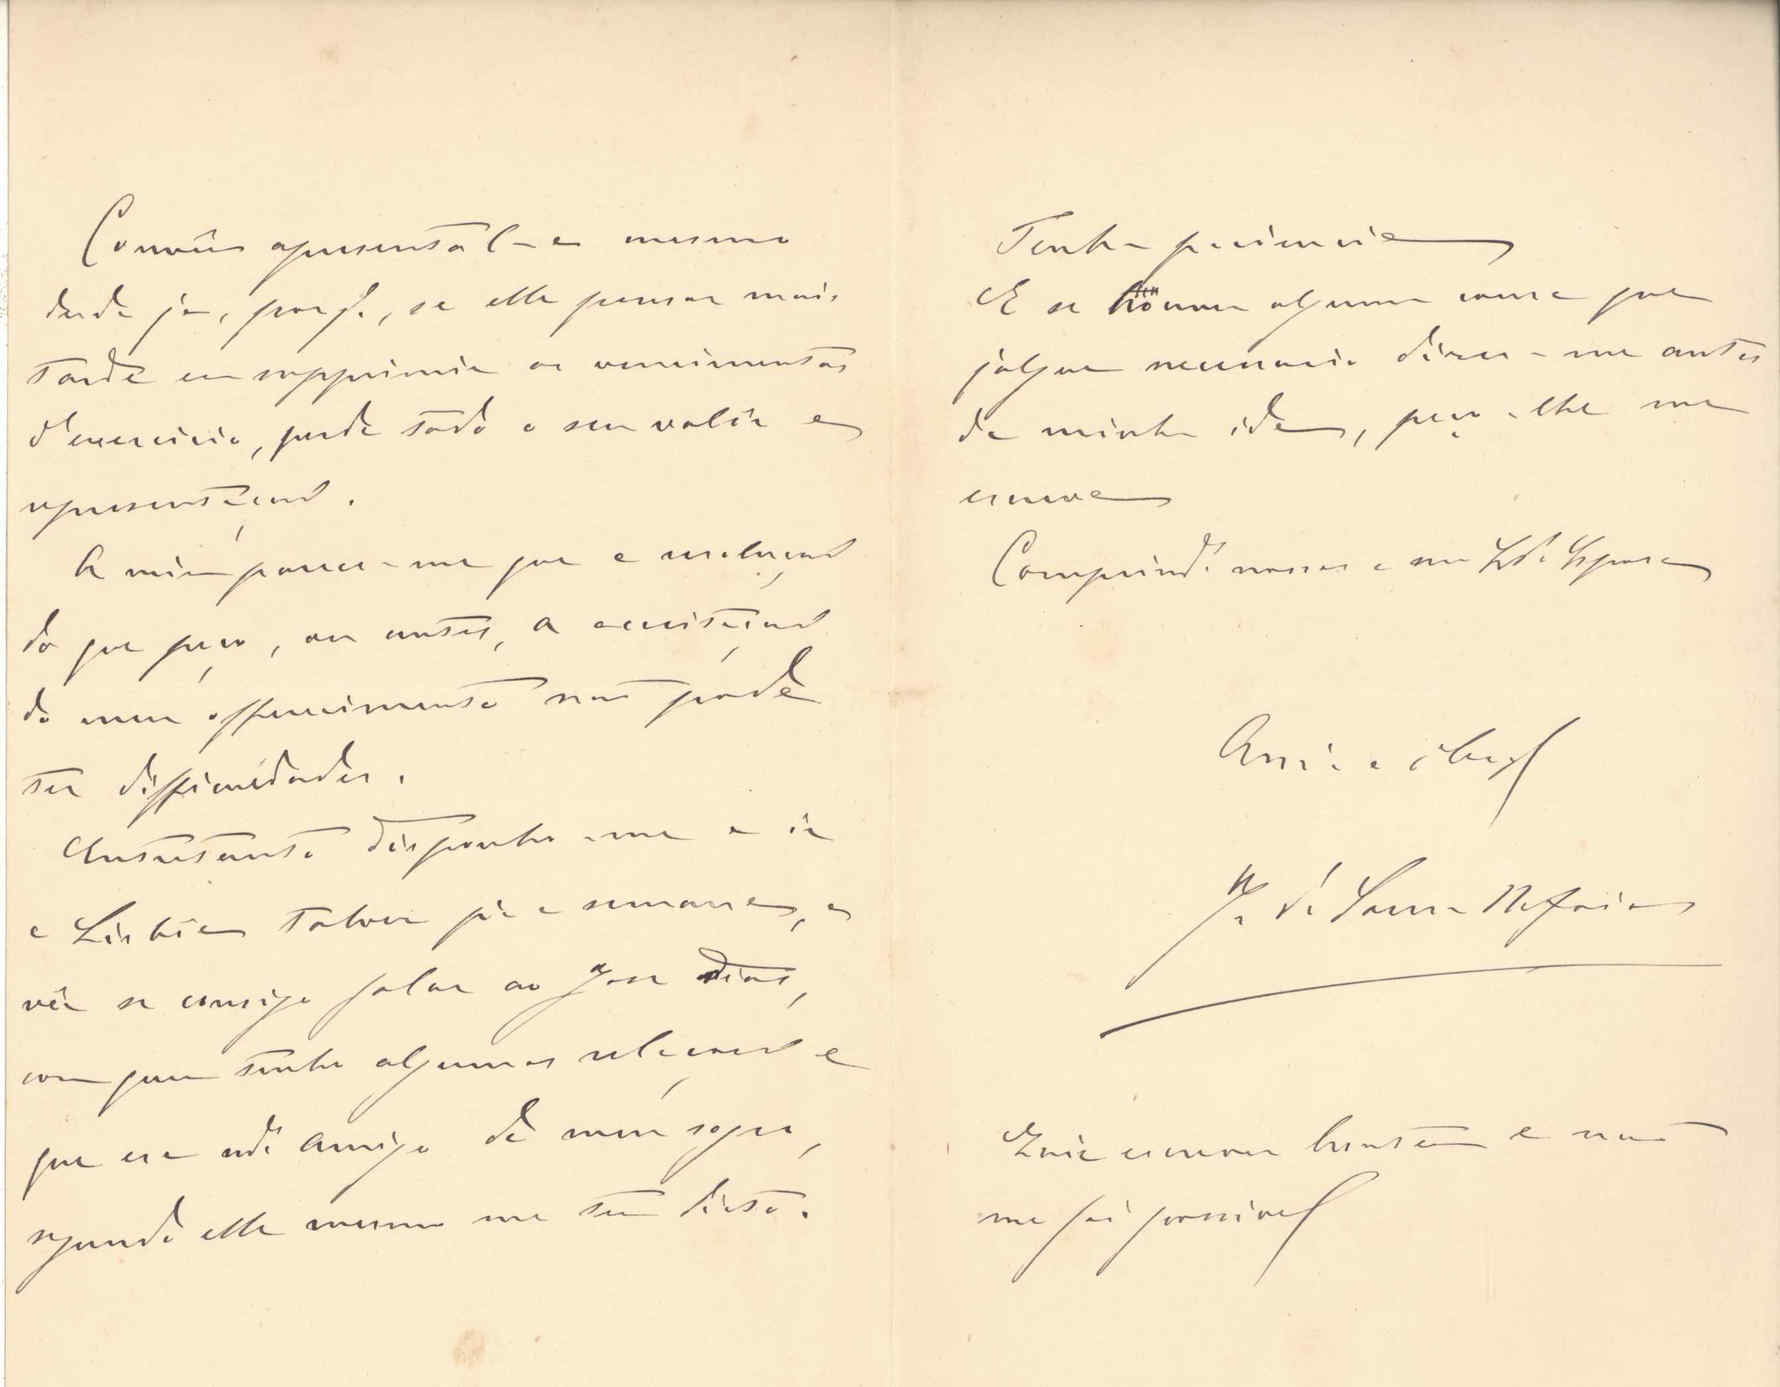 Convém apresental-a mesmo
desde já, porq., se elle pensar mais
tarde em supprimir os vencimentos
d'exercicio, perde todo o seu valôr a
representação.
A mim parece-me que a resolução
do que peço, ou antes, a acceitação
do meu offerecimento não póde
ter difficuldades.
Entretanto disponho-me a ir
a Lisbôa talvez p.ª a semana, a
vêr se consigo falar ao José Dias,
com quem tenho algumas relações e
que era mt.º amigo de meu sogro,
segundo elle mesmo me tem dito.
Tenha paciencia
E se houver alguma cousa que
julgue necessario dizer-me antes
da minha ida, peço-lhe me
escreva
Comprim.tos nossos a sua Esposa
Am.º e obg.
J. de Sousa
Quiz escrever hontem e não
me foi possivel